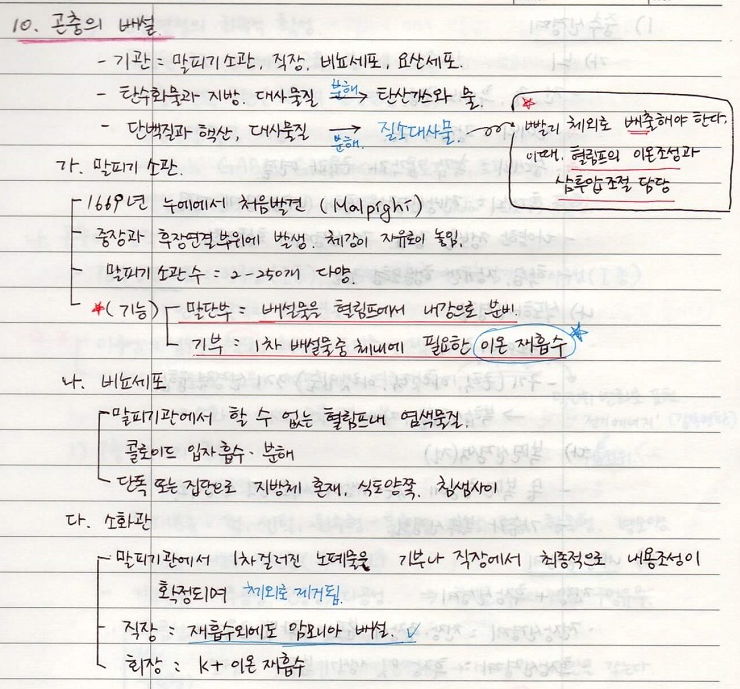 10. 곤충의 배설.
- 기관 = 말피기소관, 직장, 비뇨세포, 요산세포.
- 탄수화물과 지방. 대사물질 분해→ 탄산가스와 물.
- 단백질과 핵산, 대사물질 →분해. 질소대사물.
* 빨리 체외로 배출해야 한다.
이때, 혈림프의 이온조성과
삼투압조절 담당
가. 말피기 소관.
1669년 누에에서 처음발견 (Malpighi)
- 중장과 후장연결부위에 발생. 체강이 자유로이 놓임.
- 말피기 소관수 = 2-250개 다양.
*(기능) 말단부 = 배설물을 혈림프에서 내강으로 분비.
기부 = 1차 배설물중 체내에 필요한 이온 재흡수
나. 비뇨세포
말피기관에서 할 수 없는 혈림프내 염색물질.
콜로이드 입자흡수·분해
단독 또는 집단으로 지방체 혼재, 식도양쪽, 침샘사이
다. 소화관
말피기관에서 1차걸러진 노폐물을 기부나 직장에서 최종적으로 내용조성이
확정되며 체외로 제거됨.
- 직장 = 재흡수외에도 암모니아 배설.
회장 = K+ 이온 재흡수